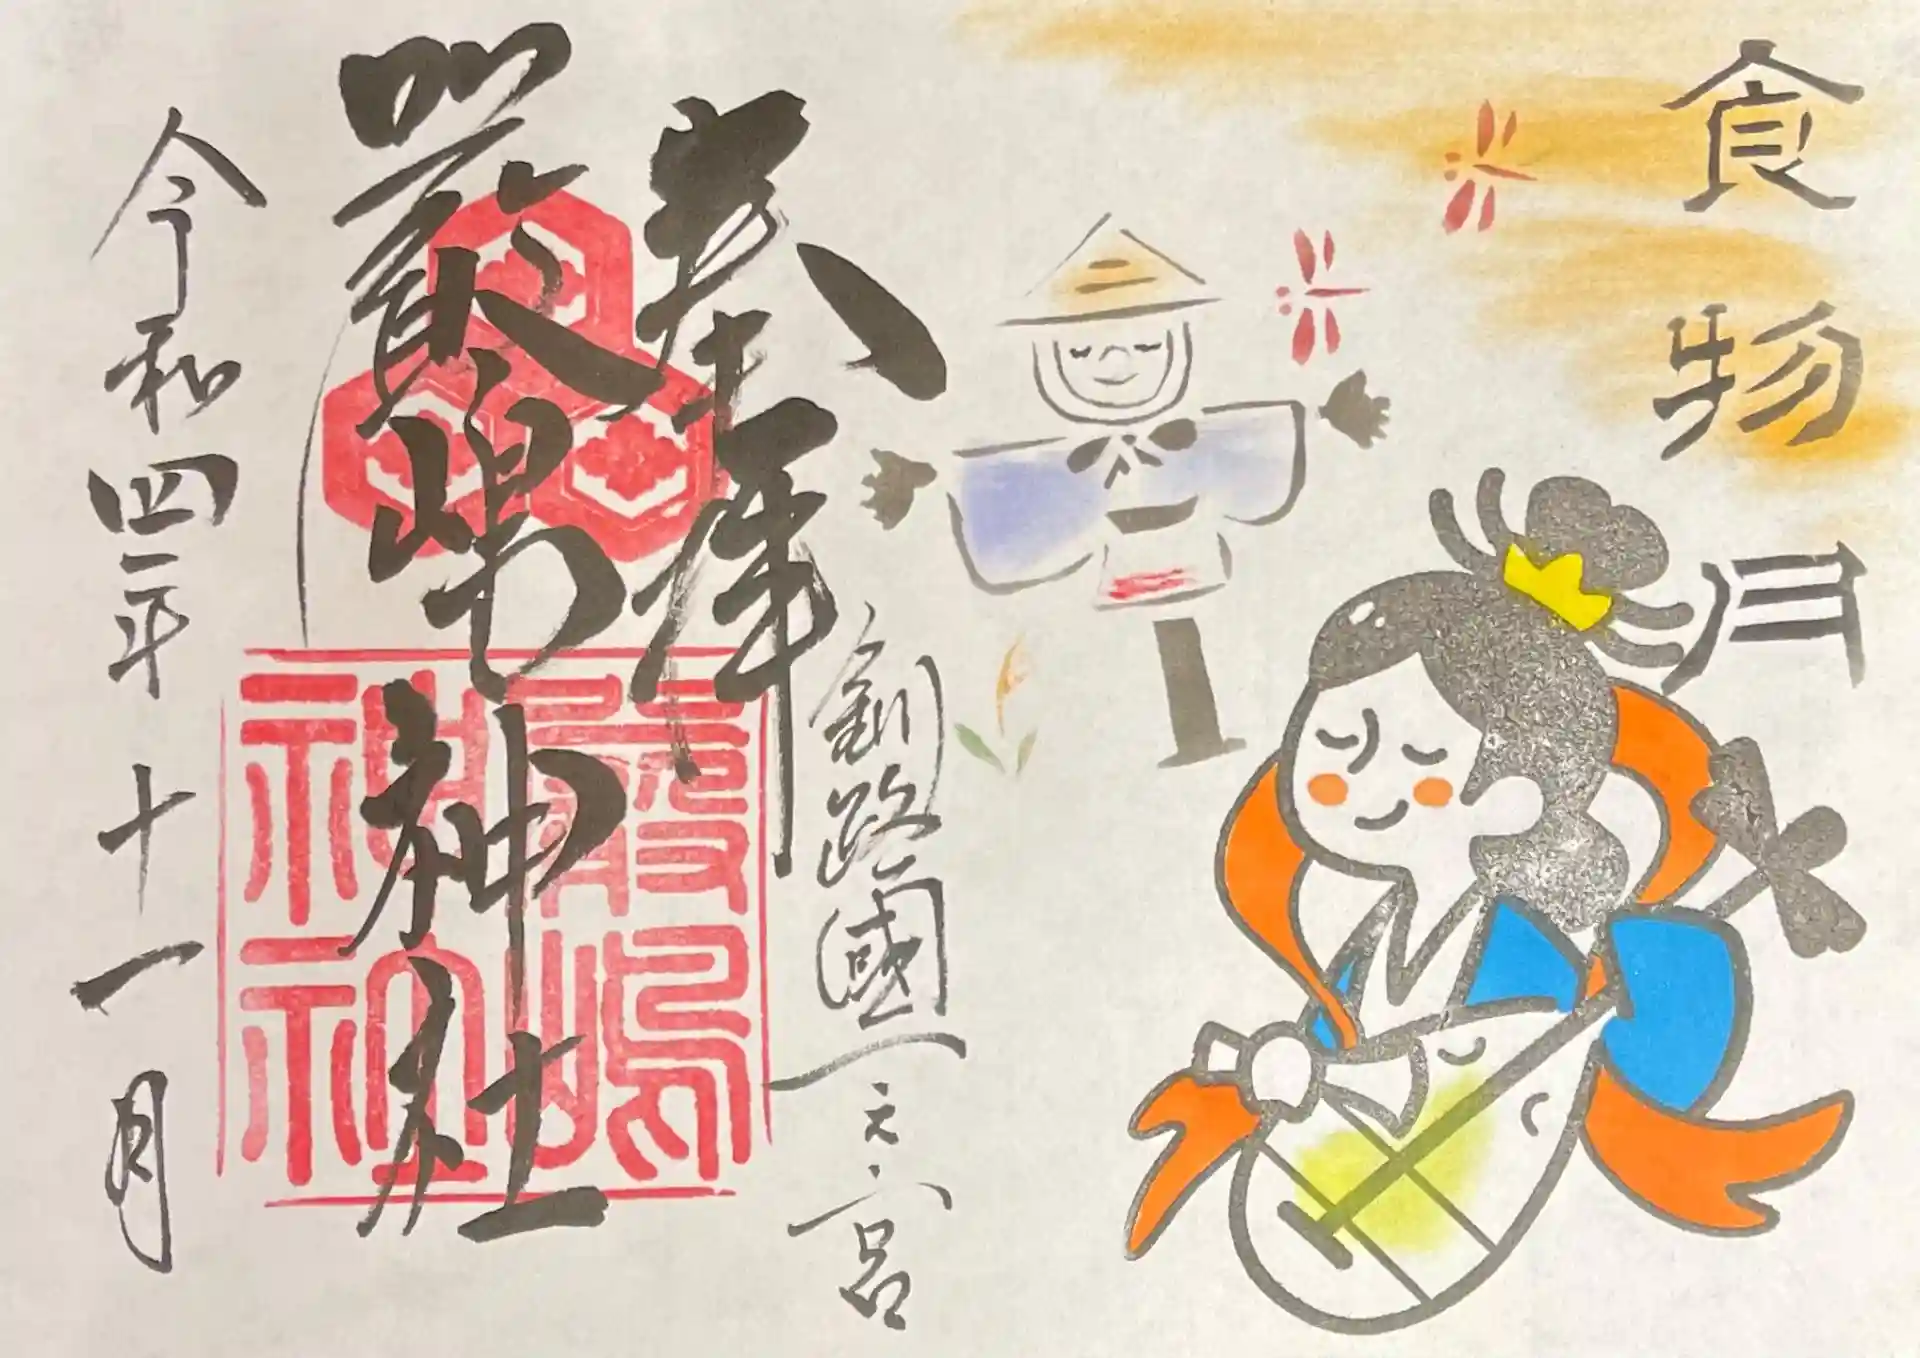 食物月
奉拝
釧路國一之宮
厳島神社
嚴嶋神社
令和四年十一月